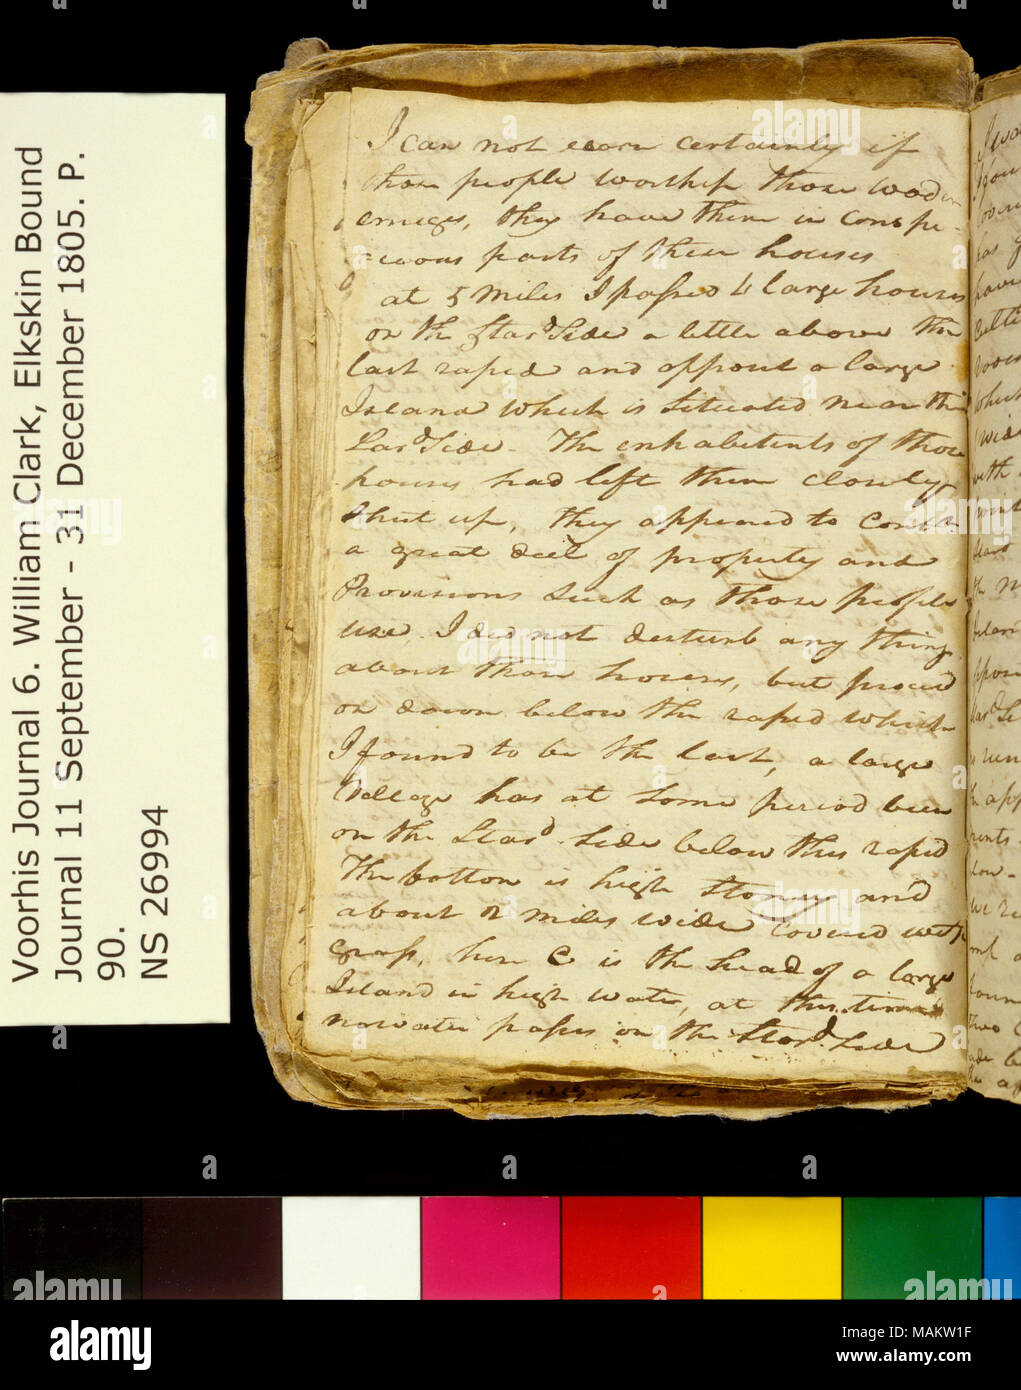 Voorhis Journal 6. William Clark, Elkskin Bound
Journal 11 September - 31 December 1805. P.
90.
NS 26994
I can not learn certainly if
those people worship those woden
emeges, they have them in conspe-
=cuous parts of their houses
at 5 Miles I passed 4 large houses
on the Stard Side a little above the
last rapid and opposit a large
Island which is Situated near the
Lard Side - The enhabitents of those
houses had left them closely
Shut up, they appeared to contn
a great deel of property and
Provisions Such as those people
use, I did not disturb any thing
about those houses, but proceed
on down below the rapid which
I found to be the last, a large
Village has at Some period been
on the Stard Side below this rapid
The bottom is high Stoney and
about 2 miles wide covered with
grass, here C is the head of a large
Island in high water, at this time
no water passes on the Stard Side
alamy
Image ID: MAKW1F
www.alamy.com